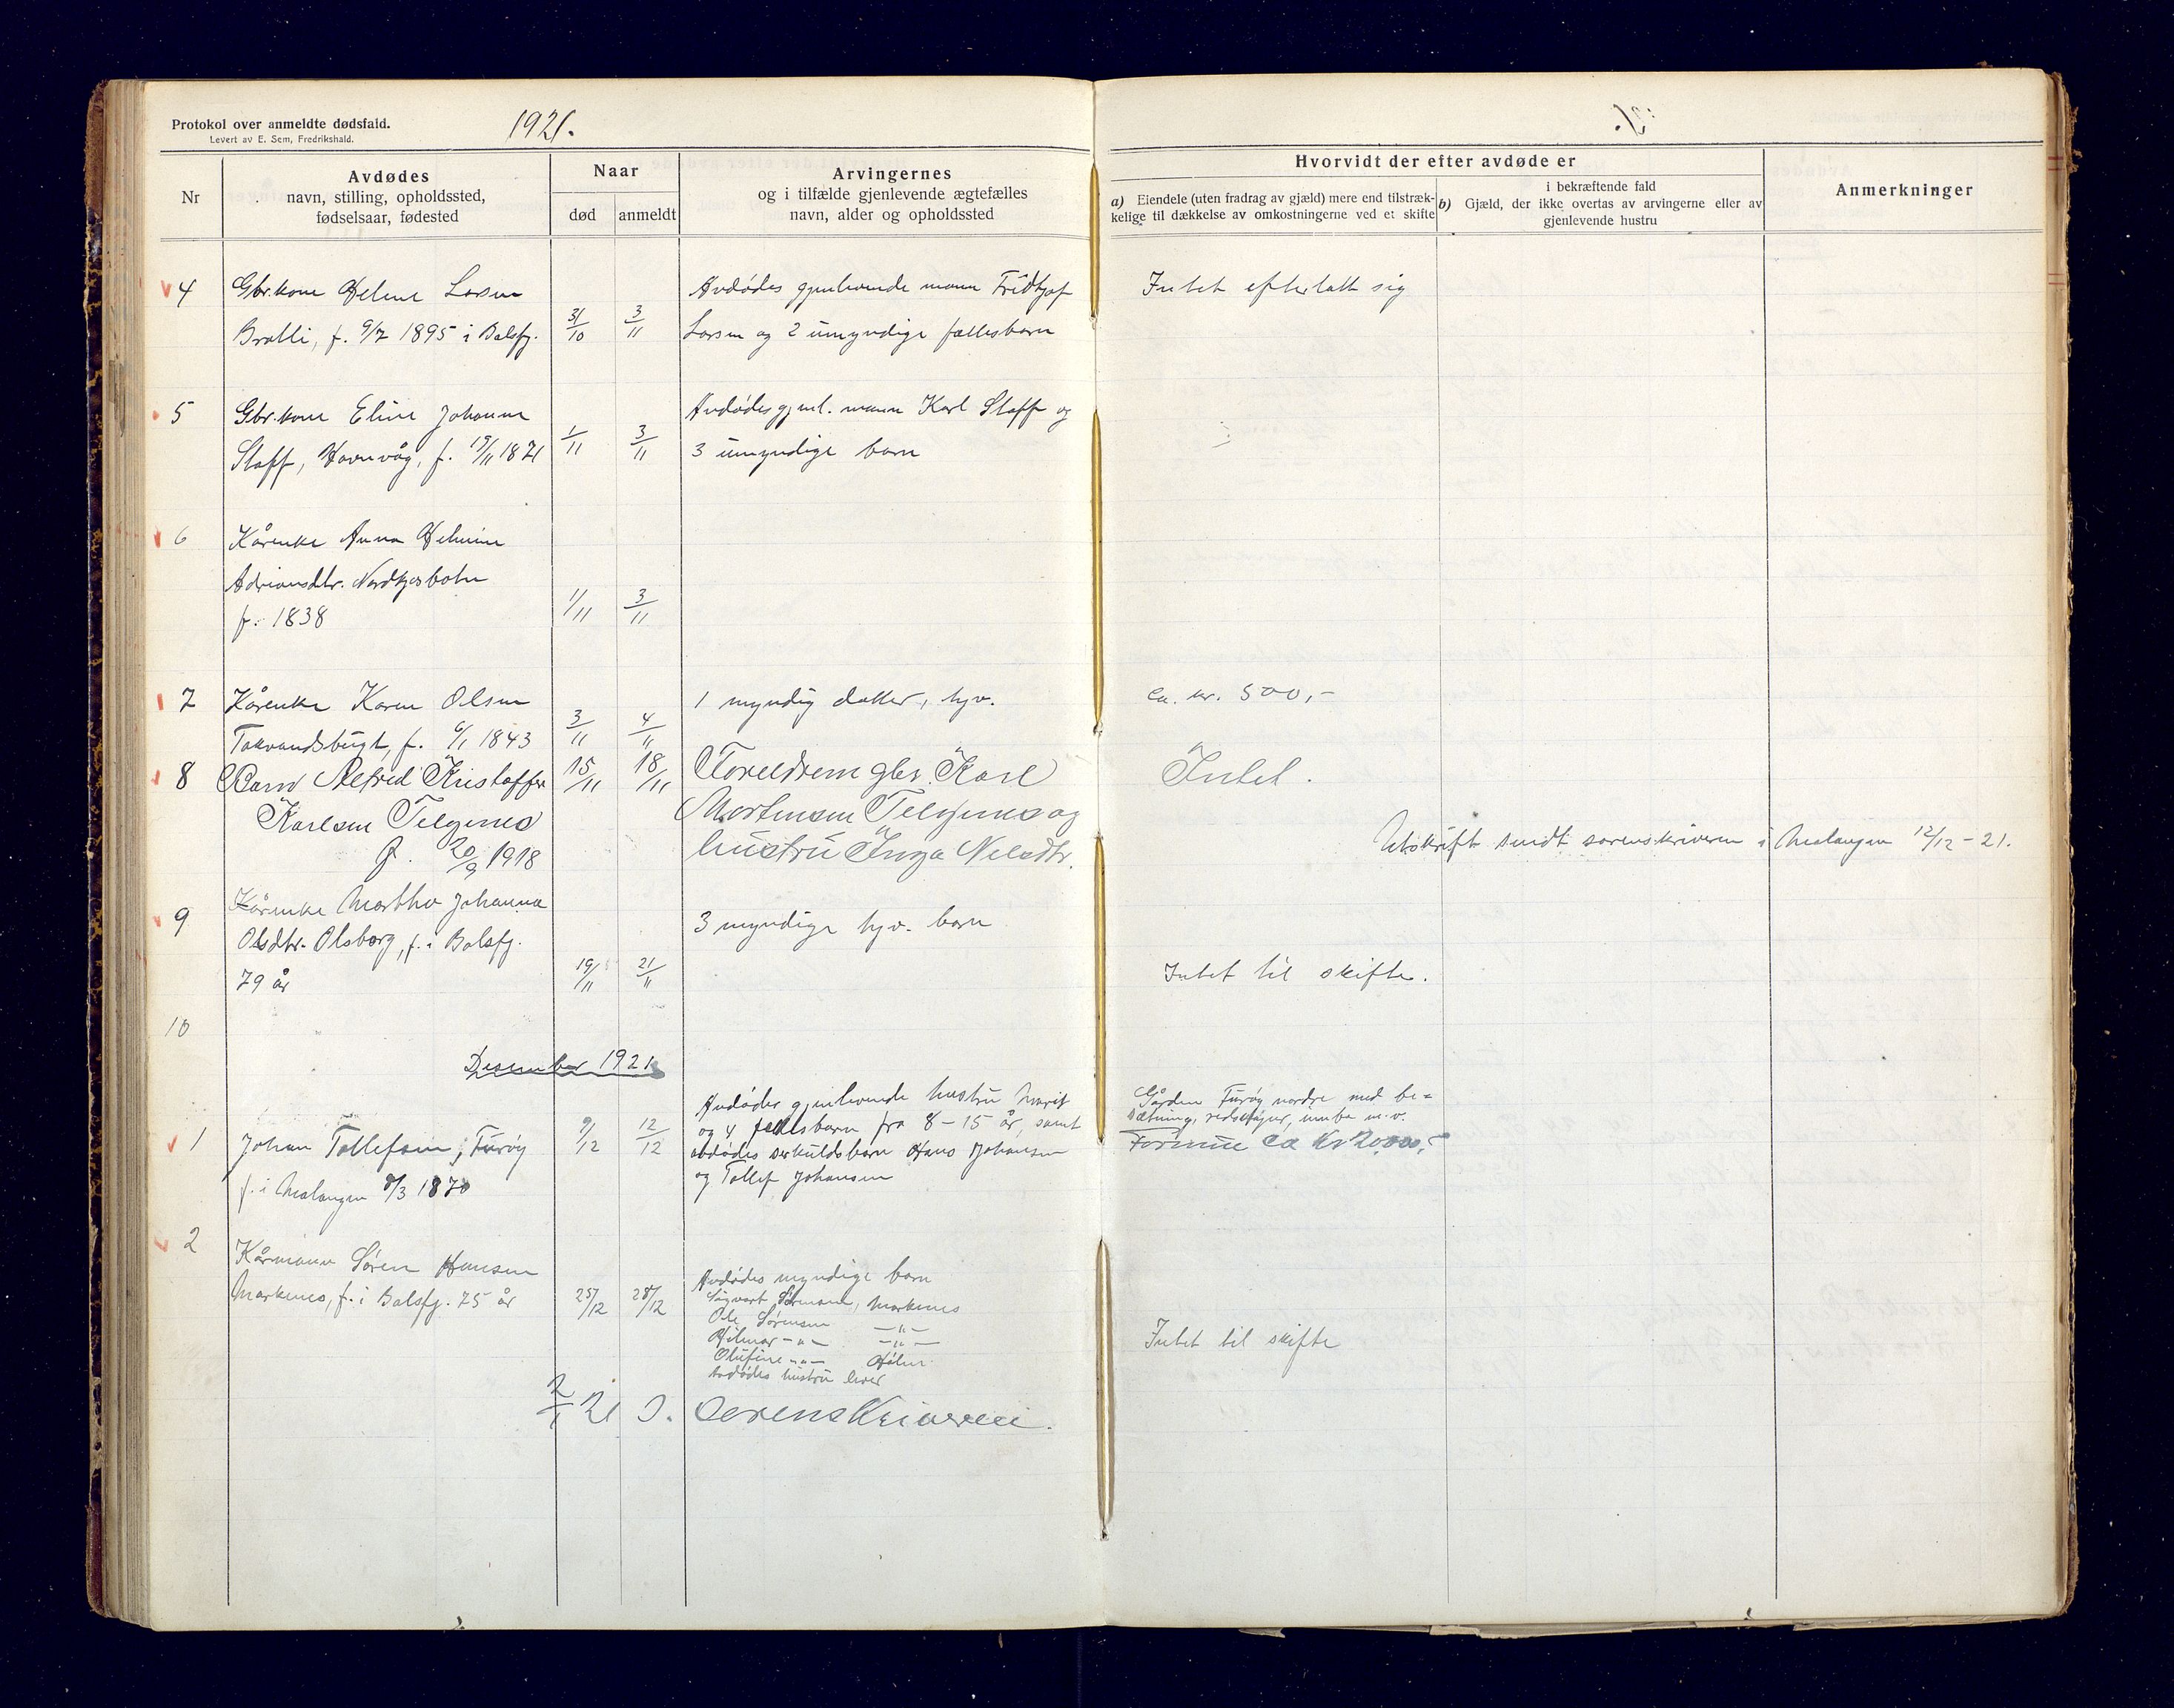 Protokol over anmeldte dødsfald.
Levert av E. Sem, Fredrikshald.
1921.
Nr
Avdødes
navn, stilling, opholdssted,
fødselsaar, fødested
Naar
død
anmeldt
Arvingernes
og i tilfælde gjenlevende ægtefælles
navn, alder og opholdssted
Hvorvidt der efter avdøde er
a) Eiendele (uten fradrag av gjæld) mere end tilstræk-
kelige til dækkelse av omkostningerne ved et skifte
i bekræftende fald
b) Gjæld, der ikke overtas av arvingerne eller av
gjenlevende hustru
Anmerkninger
4
Gbr.kone Helene Larsen
Bratli, f. 9/7 1895 i Balsfj.
31/10
3/11
Avdødes gjenlevende mann Fridtjof
Larsen og 2 umyndige fællesbarn
Intet efterlatt sig
5
Gbr.kone Eline Johanne
Staff, Havnvåg, f. 19/11 1871
1/11
3/11
Avdødes gjenl. mann Karl Staff og
3 umyndige barn
6
Kårenke Anna Helmine
Adriansdtr. Nordkjosbotn
f. 1838
1/11
3/11
7
Kårenke Karen Olsen
Takvandsbugt, f. 6/1 1843
3/11
4/11
1 myndig datter, hjv.
ca. kr. 500,-
8
Barn Alfred Kristoffer
Karlsen Telgnes
f. 20/9 1918
15/11
18/11
Foreldrene gbr. Karl
Mortensen Telgnes og
hustru Inga Nilsdtr.
Intet.
Utskrift sendt sorenskriveren i Malangen 12/12-21.
9
Kårenke Martha Johanna
Olsdtr. Olsborg, f. i Balsfj.
79 år
19/11
21/11
3 myndige hjv. barn
Intet til skifte.
10
Desember 1921
1
Johan Tollefsen, Furøy
f. i Malangen 8/3 1870
9/12
12/12
Avdødes gjenlevende hustru Marit
og 4 fellesbarn fra 8-15 år, samt
avdødes særkuldsbarn Hans Johansen
og Tollef Johansen
Gården Furøy nordre med be=
sætning, redskaper, innbo m.v.
Formue ca Kr 20,000,-
2
Kårmann Søren Hansen
Markenes, f. i Balsfj. 75 år
25/12
28/12
Avdødes myndige barn
Sigvart Sørensen, Markenes
Ole Sørensen -"-
Hilmar -"- -"-
Olufine -"-
Avdødes hustru lever
Intet til skifte
2/1 21
Sorenskriveren.